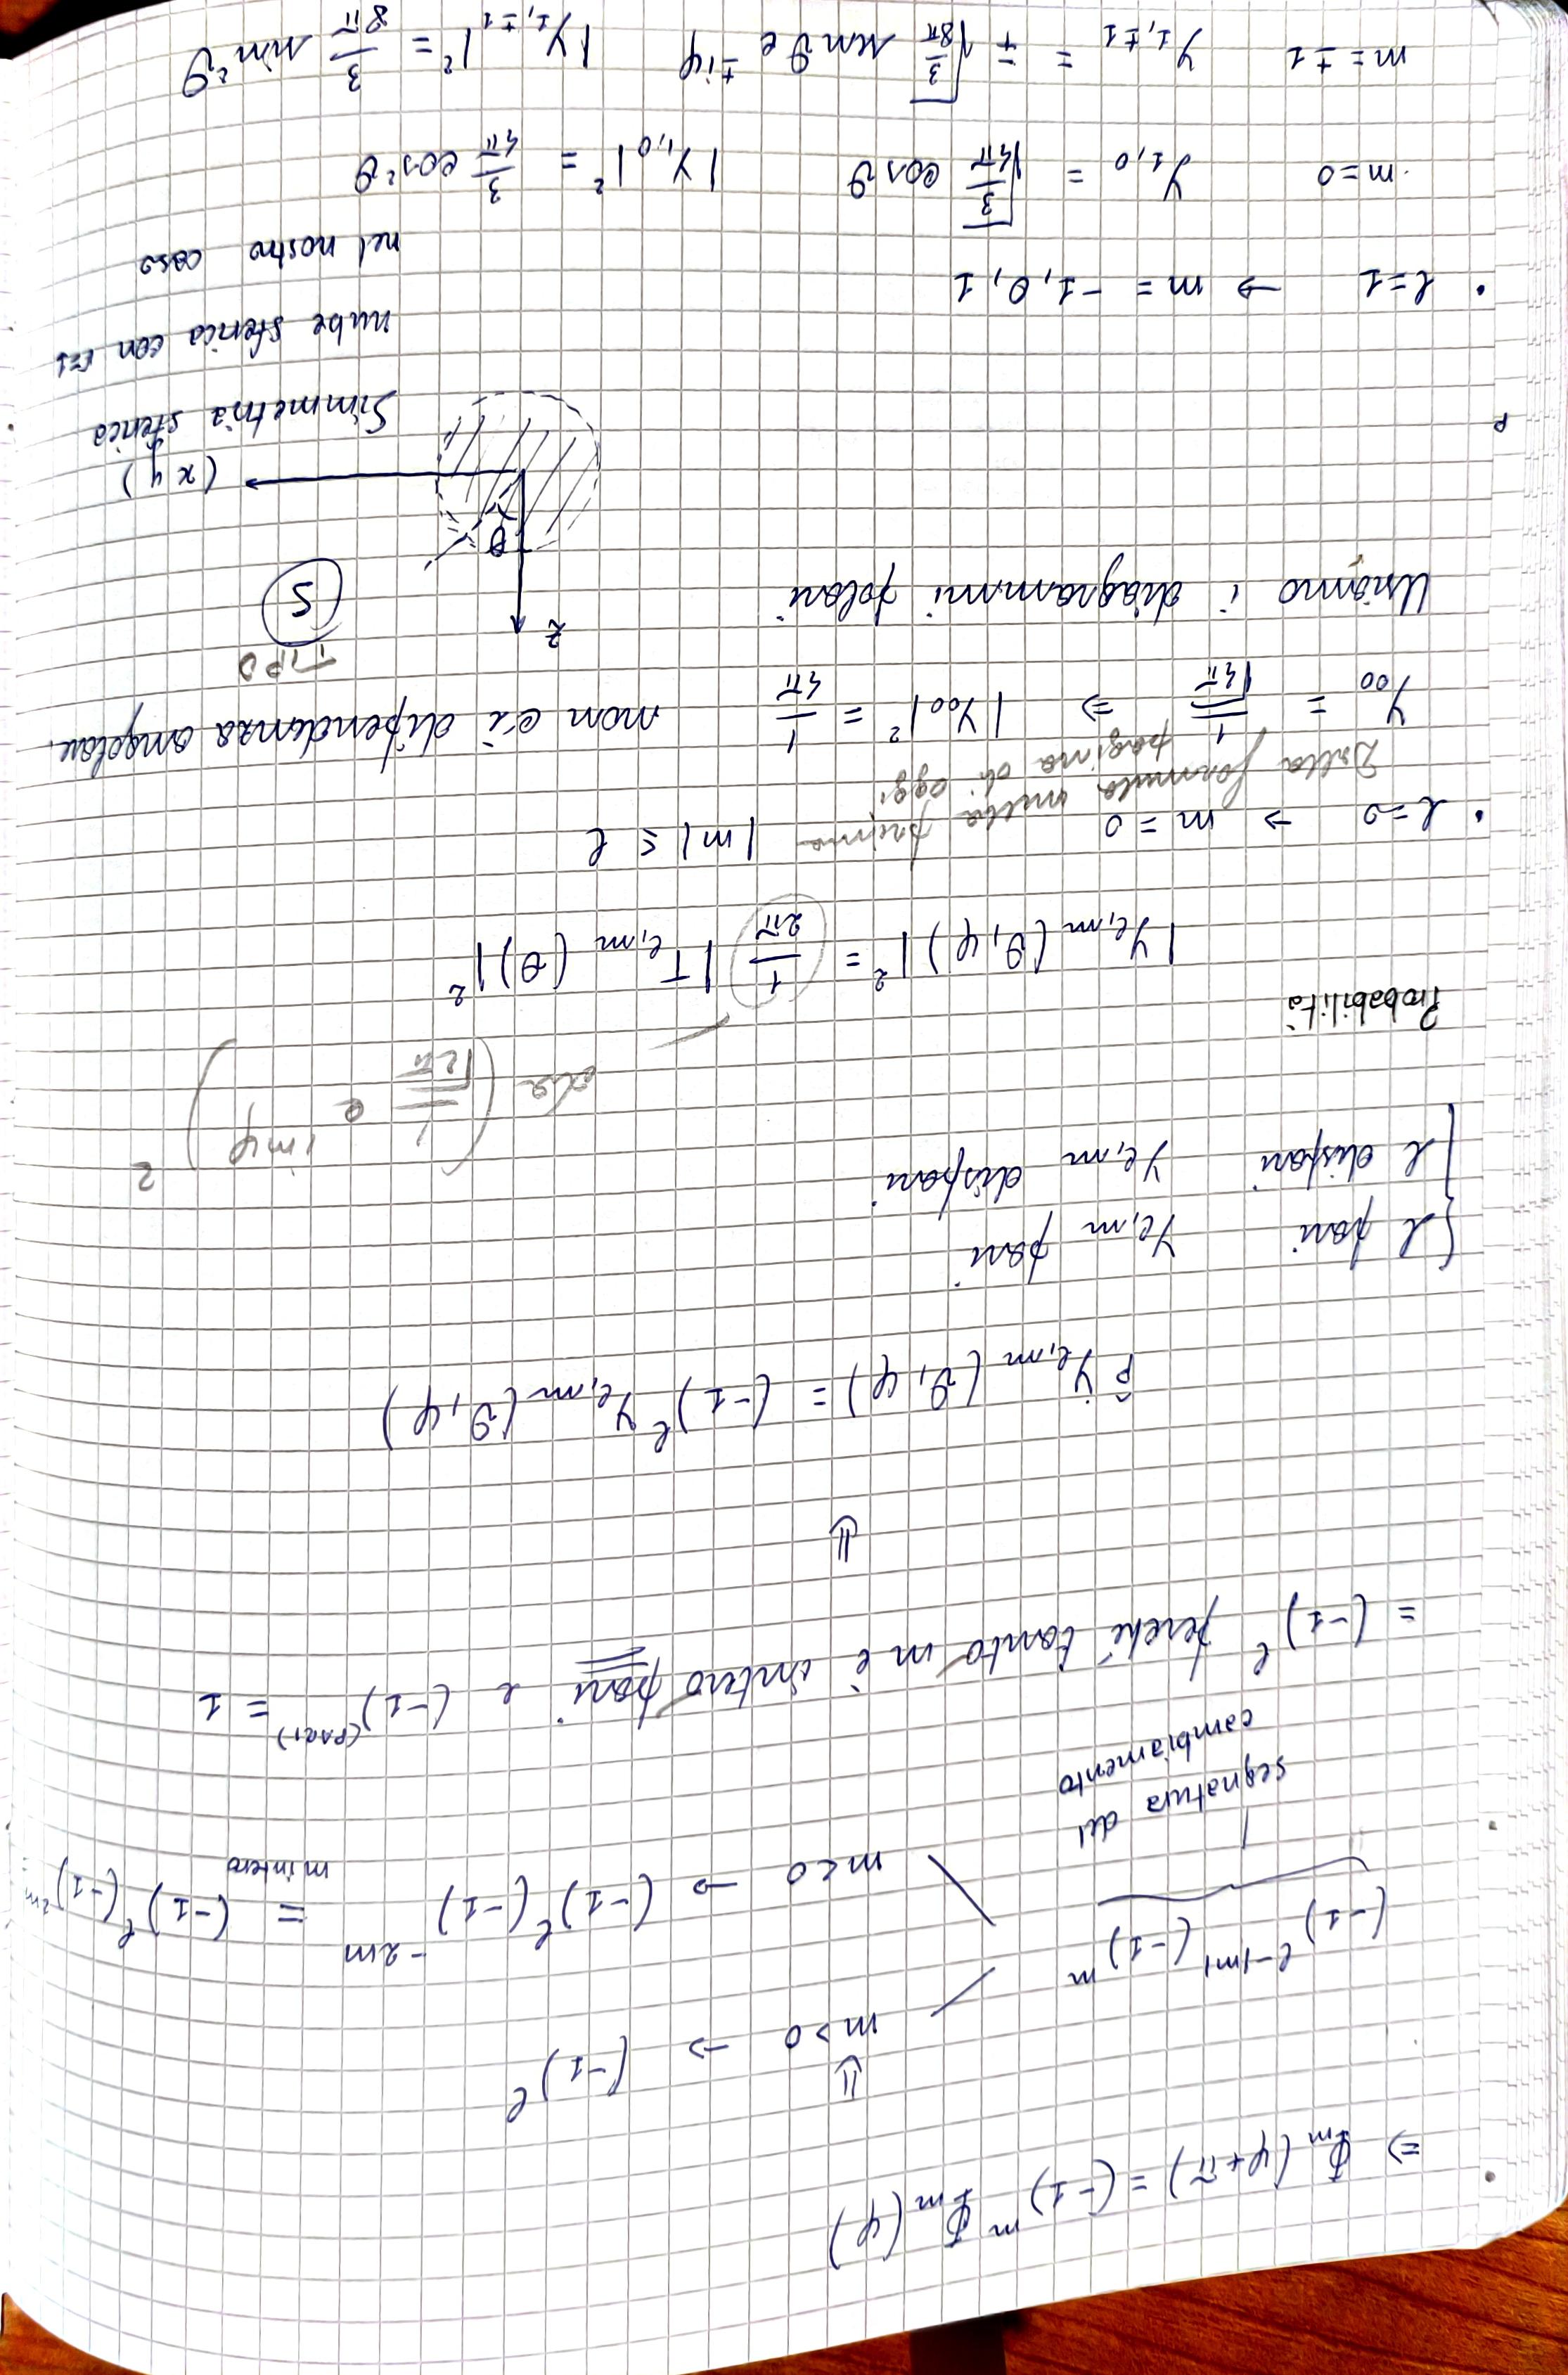 ⇒ Φm (φ+π) = (-1)^m Φm (φ)
⇓
m>0 → (-1)^ℓ
(-1)^ℓ-|m| (-1)^m
m<0 → (-1)^ℓ (-1)^-2m = (-1)^ℓ (-1)^2m =
m intero
segnatura del
cambiamento
= (-1)^ℓ perché tanto m è intero pari e (-1)^(PARI) = 1
⇓
P̂ Yℓ,m (θ,φ) = (-1)^ℓ Yℓ,m (θ,φ)
{ ℓ pari Yℓ,m pari
ℓ dispari Yℓ,m dispari
da (1/√2π e^imφ)^2
Probabilità
|Yℓ,m (θ,φ)|^2 = 1/2π |Tℓ,m (θ)|^2
• ℓ=0 → m=0 |m| ≤ ℓ
Dalla formula nella prima
pagina di oggi
Y00 = 1/√4π ⇒ |Y00|^2 = 1/4π non c'è dipendenza angolare.
TIPO
S
Usiamo i diagrammi polari
z
θ
(x y)
Simmetria sferica
nube sferica con r=1
nel nostro caso
• ℓ=1 → m = -1, 0, 1
m=0 Y1,0 = √3/4π cosθ |Y1,0|^2 = 3/4π cos^2θ
m=±1 Y1,±1 = ∓ √3/8π sinθ e^±iφ |Y1,±1|^2 = 3/8π sin^2θ